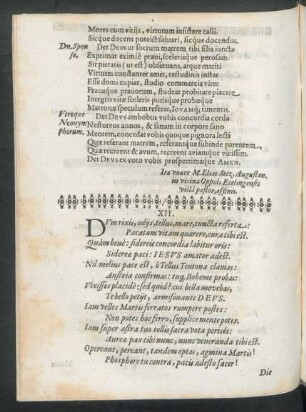 Mores cum vitijs, virtutum insistere calli.
Sicque docens poterit salvari, sicque docendus.
Dn. Sponsæ.
Det DEUS ut socrum matrem tibi filia iuncta
Exprimat eximiè pravi, scelerisque perosam.
Sit pietatis (ut est) observans, atque mariti
Virtutes constanter amet, testudinis instar
Esse domi cupiat, studio commercia vitet
Pravaque pravorum, studeat probitate placere
Integra vitæ sceleris purisque probisque
Matrona speculum referat, IOVAMque timentis.
Utroque Neonymphorum.
Det DEUS ambobus vobis concordia corda
Nestoreos annos, & sanam in corpore sano
Mentem, concedat vobis utrinque pignora lecti
Quæ referant matrem, referantque subinde parentem,
Quæ recreent & avum, recreent aviamque vicissim.
Det DEUS ex voto vobis prosperrimaque AMEN.
Ita vovet M. Elias Seiz, Augustan.
in vicina Oppidi
villâ pastor, affinis.
XII.
DUm rixis, odijs, tellus, mare, cuncta referta:
Pacatam vitam quærere, cura tibi est.
Quàm benè: sidereis concordia labitur oris:
Sidere paci: IESVS amator adest.
Nil melius pace est, ô Tellus Teutona clamas:
Austria confirmas: tuque Boheme probas:
Vixisses placidè: sed quid? cui bella movebas,
Te bello petijt, armisonante DEVS.
Iam velles Martis ferratos rumpere postes:
Non potes hoc ferro, supplice mente potes.
Iam super astra tuo tellus sacra vota periclo:
Aurea pax tibi nunc, nunc veneranda tibi est.
Opereant, pereant, tandem optas, agmina Martis!
Phosphore tu contra, pacis adesto sacer!
Dit